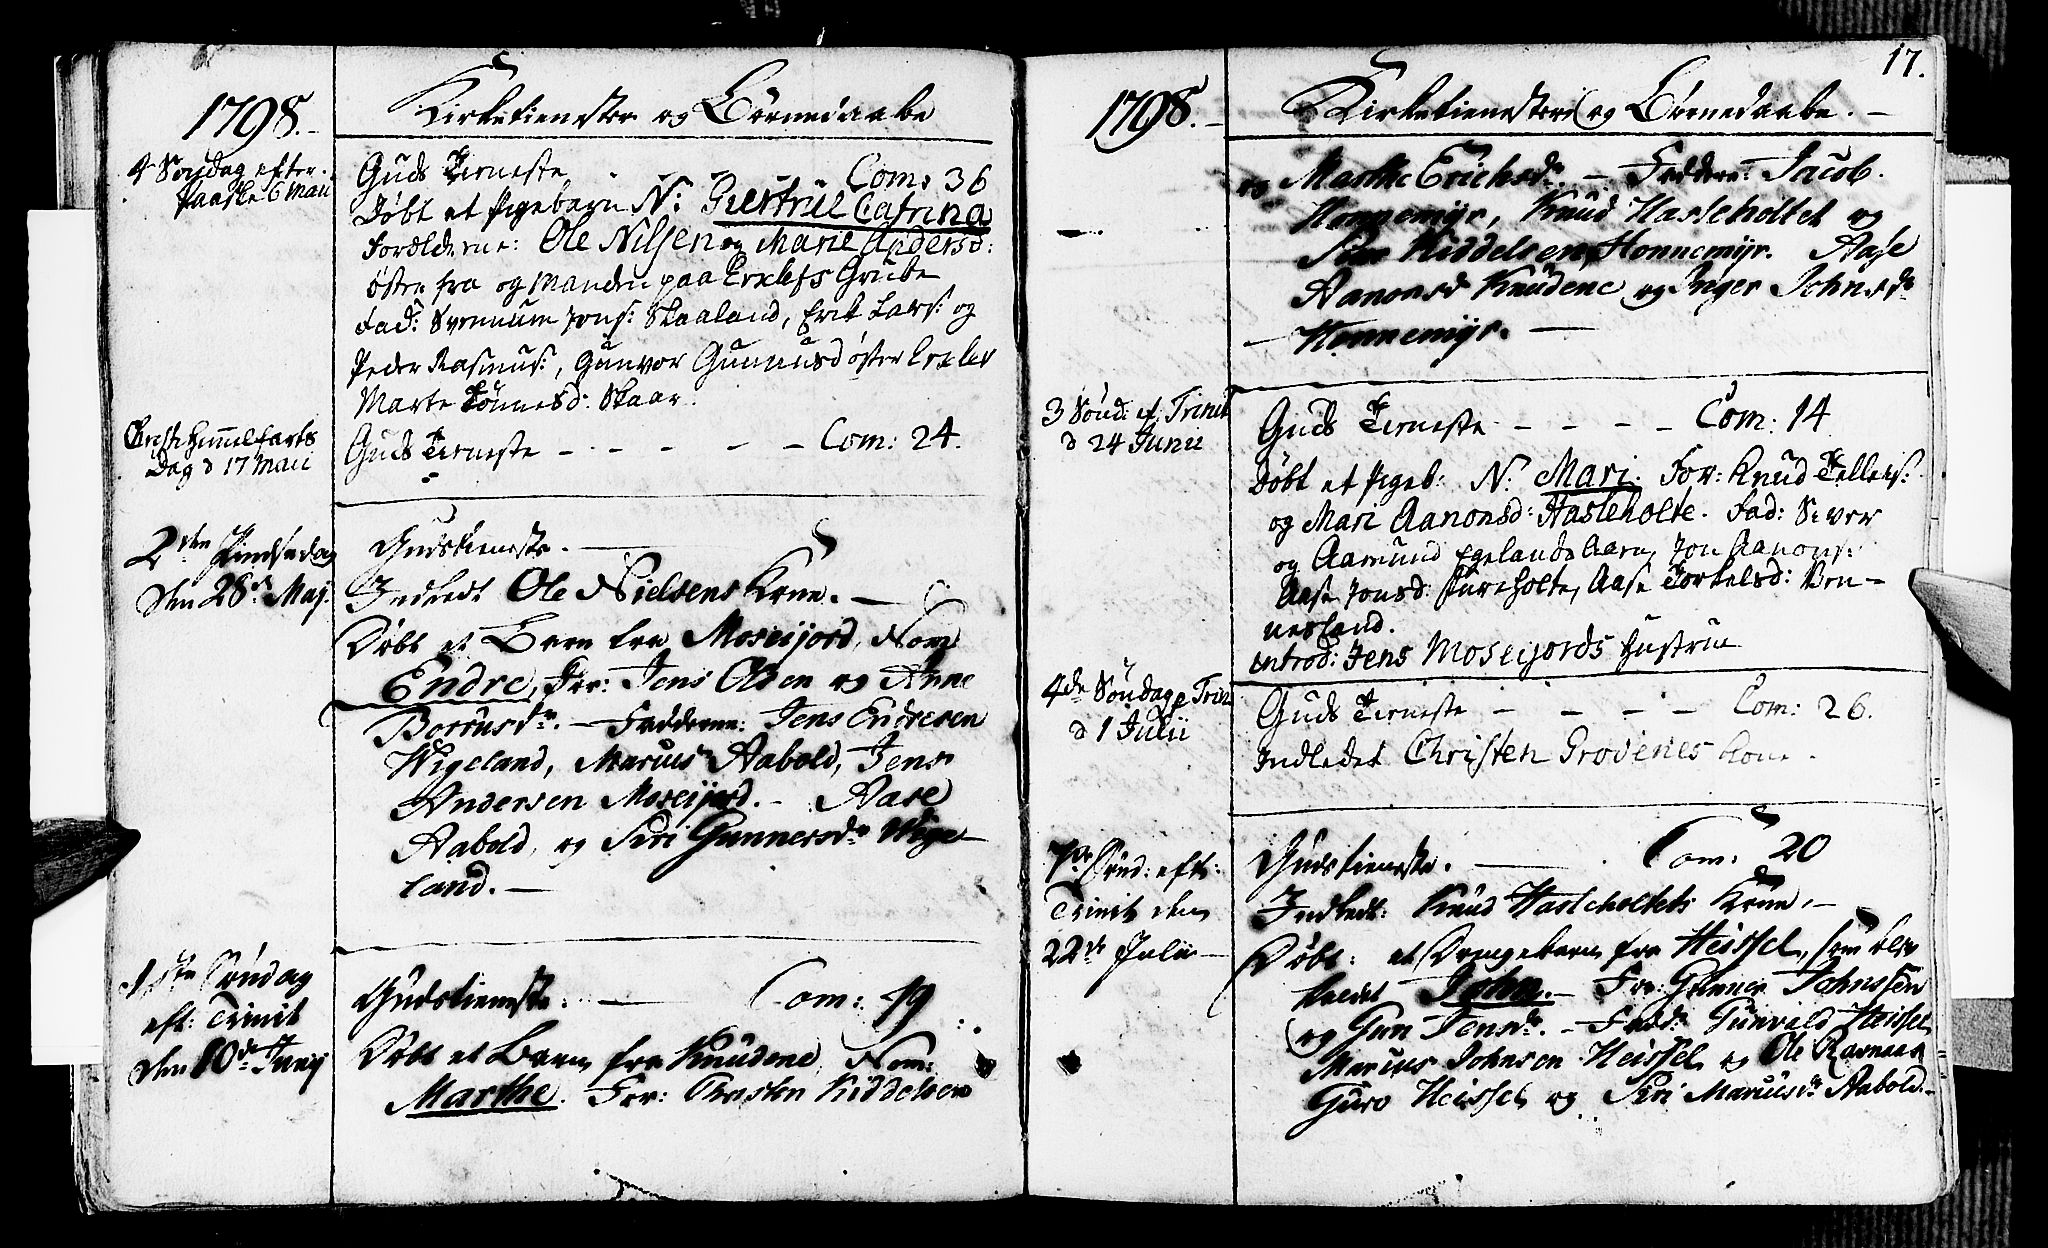 1798.
Kirketienester og Børnedaabe
4 Søndag efter
Paaske 6 Maii
Guds Tieneste Com: 36
Døbt et Pigebarn N: Giertrue Catrina
Forælderne: Ole Nilsen og Marie Andersd:
østen fra og Manden paa Erklefs Grube
Fad: Svennum Jons: Skaaland, Erik Lars: og
Peder Rasmus:, Gunvor Gunnusd østen
Marte Tønnesd: Skaar.
Christi Himmelfarts
Dag d 17 Maii
Guds Tieneste - - - - - Com: 24.
2den Pindsedag
den 28de Maj.
Gudstieneste. —
Indledt Ole Nielsens Kone. —
Døbt et Barn fra Moseijord, Nom
Endre, For: Jens Olsen og Anne
Borrusdr. — Fadderne: Jens Endresen
Wigeland, Marcus Aabold, Jens
Andersen Moseijord. - Aase
Aabold, og Siri Gunnersdr Wige-
land. —
1ste Søndag
eft: Trinit
den 10de Junij
Gudstieneste. — Com: 19
Døbt et Barn fra Knudene, Nom:
Marthe. For: Thosten Kiddelsen
17.
1798. -
Kirketienester og Børnedaabe. -
og Marthe Erichsdr. — Faddere: Jacob
Honnemyr, Knud Hasseholtet og
Kiddelsen Honnemyr. Aase
Aanonsd Knudene og Inger Johnsdr
- Honnemyr. —
3 Sønd: ef Trinit
d 24 Junii
Guds Tieneste - - - - Com: 14
Døbt et Pigeb: N: Mari. For: Knud Tellefs:
og Mari Aanonsd: Hasleholte. Fad: Siver
og Aamund Egelandsaaen, Jon Aanons:
Aase Jonsd: Fureholte, Aase Torkelsd: Ven-
nesland.
introd: Jens Moseijords Hustrue
4de Søndag e Trin
d 1 Julii
Guds Tieneste - - - - Com: 26.
Indledet Christen Grovenes Kone.
7de Sønd: eft:
Trinit den
22de Julii
Gudstieneste. — Com: 20
Indledt: Knud Hasleholtets Kone, -
Døbt: et Drengebarn fra Heissel, som blev
kaldet John. - For: Gunner Johnssen
og Gun Jensdr. - Fadd: Gunvald Heissel
Marcus Johnsen Heissel og Ole Ravnaas
Guro Heissel og Siri Marcusdr Aabold. -